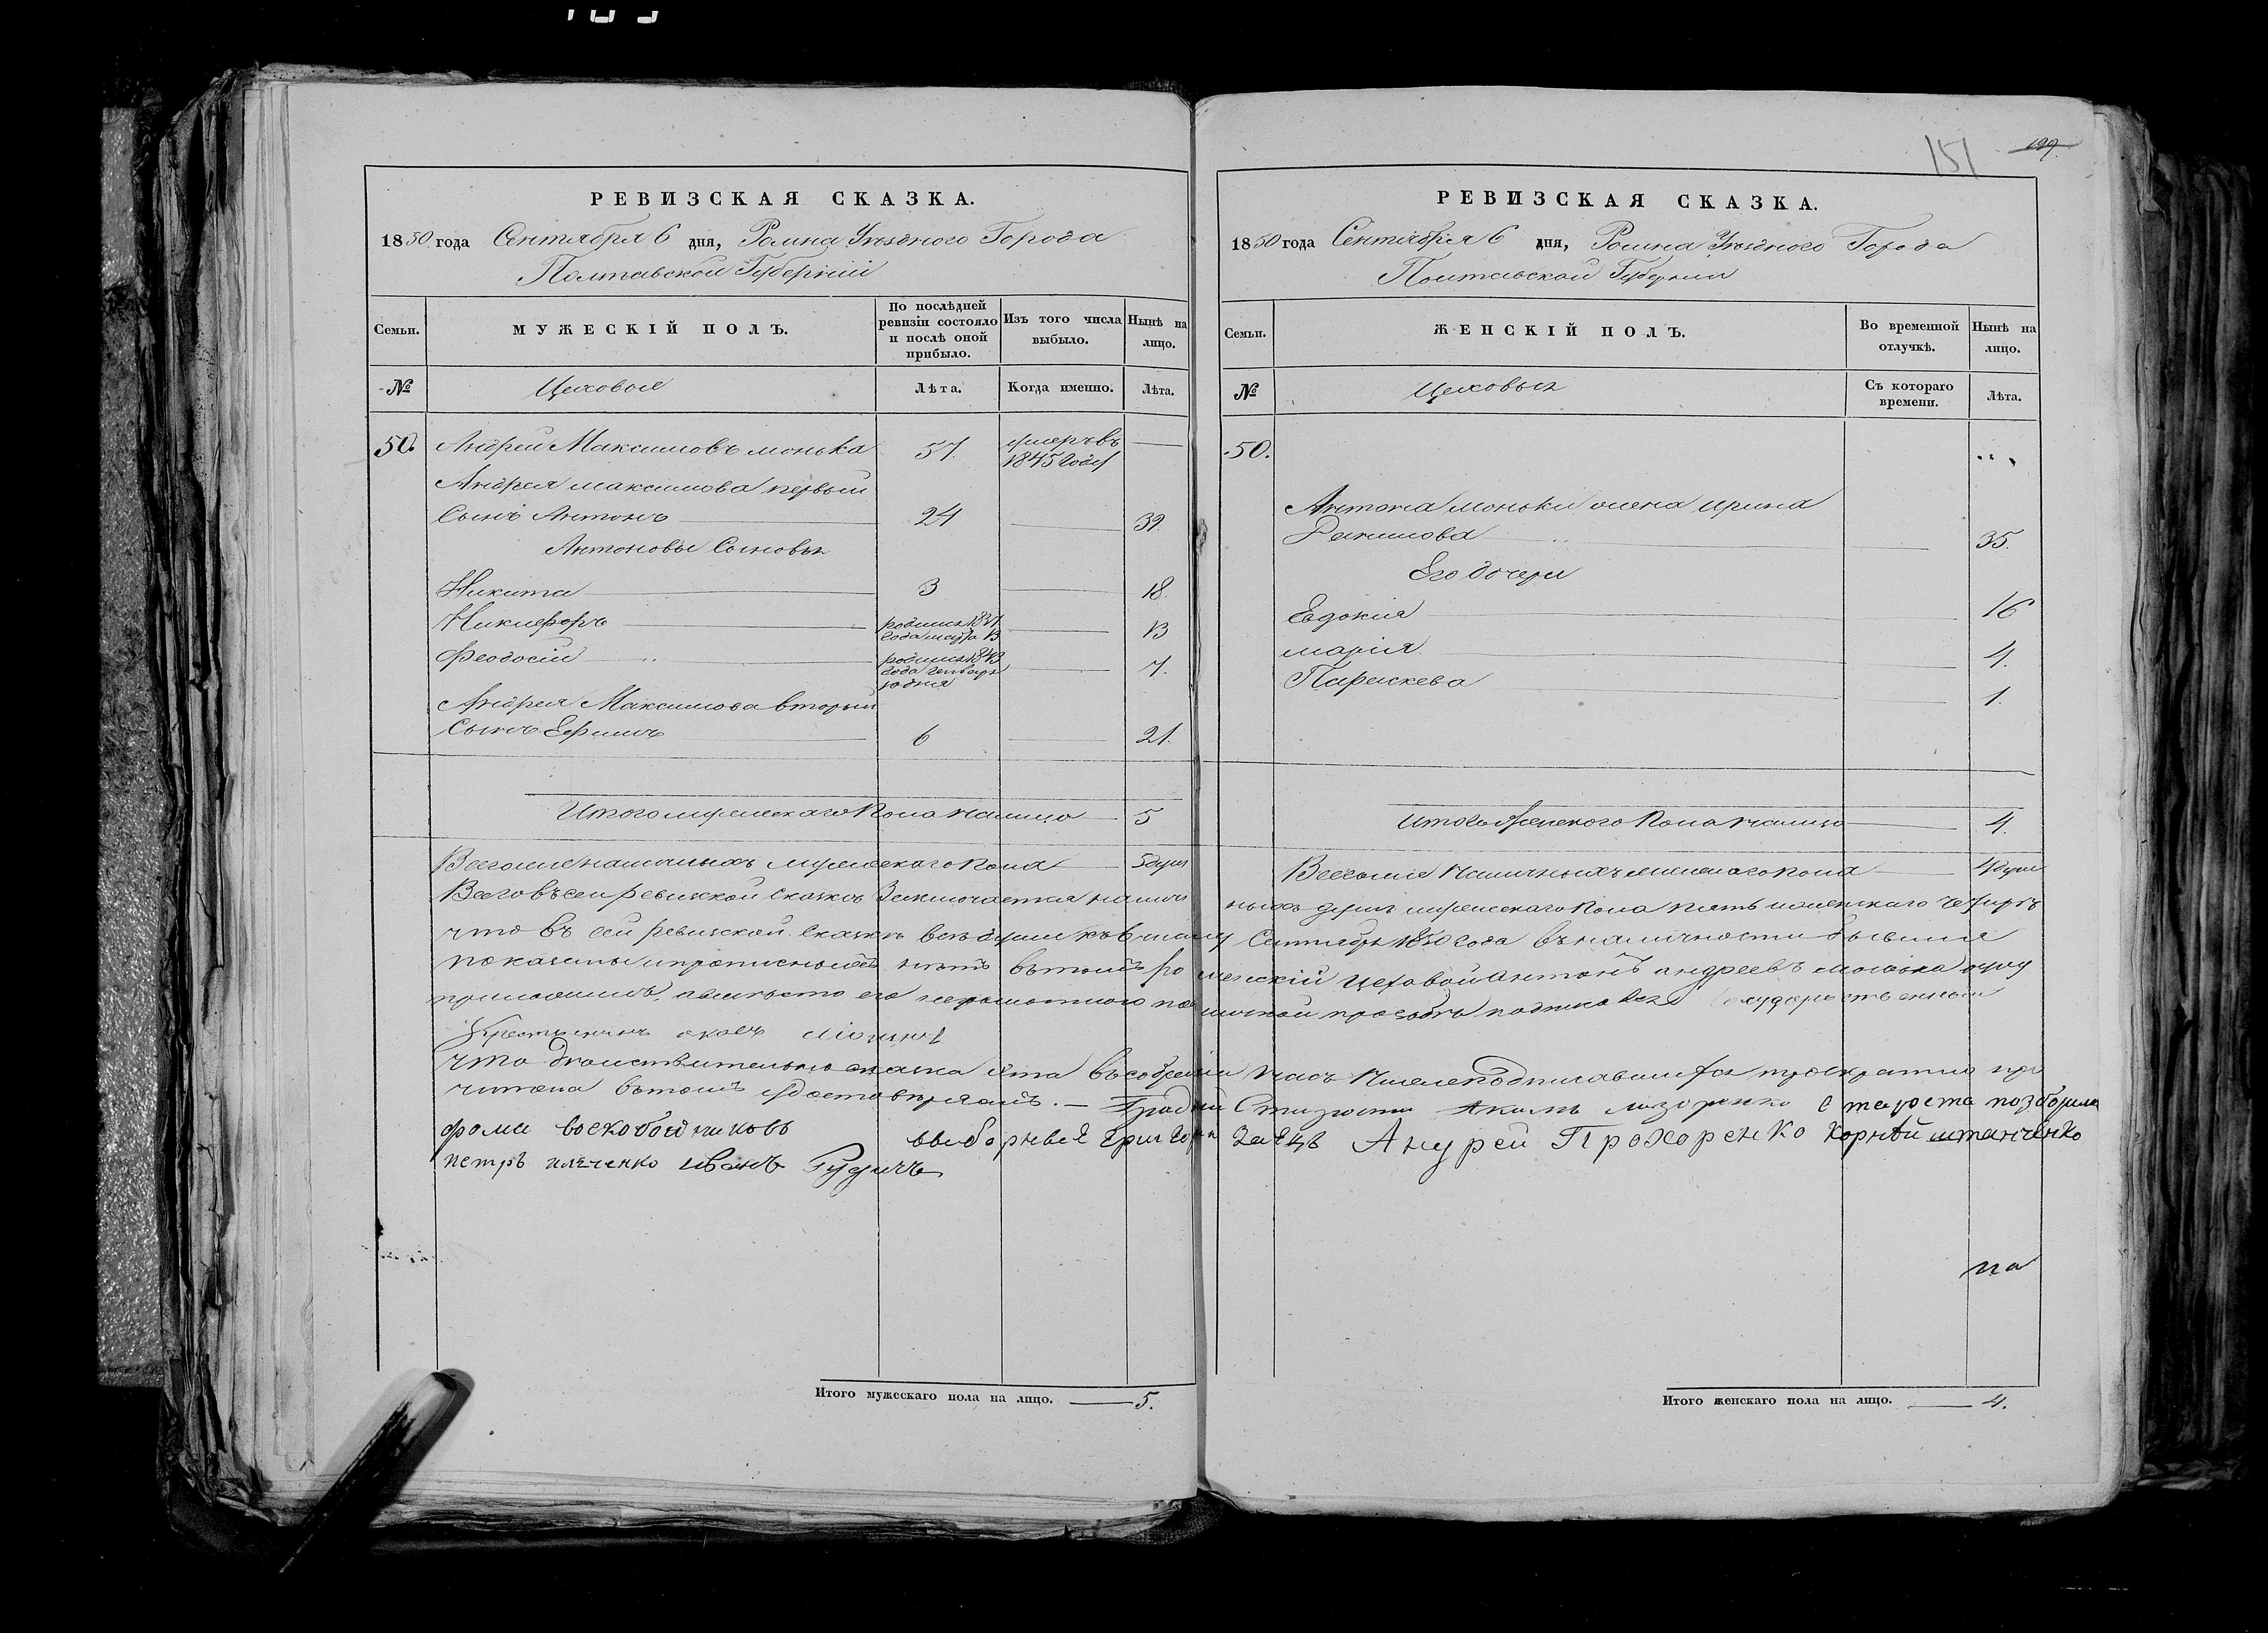 151 199.
РЕВИЗСКАЯ СКАЗКА.
1850 года Сентября 6 дня, Ромна Уѣзднаго Города
Полтавской Губерніи
Семьи.
МУЖЕСКІЙ ПОЛЪ.
По послѣдней ревизіи состояло и послѣ оной прибыло.
Изъ того числа выбыло.
Нынѣ на лицо.
№
Цеховые
Лѣта.
Когда именно.
Лѣта.
50. Андрей Максимовъ монька 57. умеръ въ 1845 году
Андрея максимова первый
Сынъ Антонъ 24 39.
Антоновы Сыновья
Никита 3 18.
Никифоръ родился 1837 года 13
Феодосій родился 1843 года Генваря 10 дня 7.
Андрея Максимова вторый
Сынъ Ефимъ 6 21.
Итого мужескаго пола налицо 5
Всего же наличныхъ мужескаго пола 5 душъ
РЕВИЗСКАЯ СКАЗКА.
1850 года Сентября 6 дня, Ромна Уѣзднаго Города
Полтавской Губерніи
Семьи.
ЖЕНСКІЙ ПОЛЪ.
Во временной отлучкѣ.
Нынѣ на лицо.
№
Цеховыя
Съ котораго времени.
Лѣта.
50.
Антона Моньки жена ирина
35.
Его дочери
Евдокия 16
марія 4.
Параскева 1.
Итого женского пола налицо 4.
Всего же наличныхъ женскаго пола 4 души
Всего въ сей ревизской сказкѣ заключается наличныхъ душъ мужескаго пола пять женскаго четыре
что въ сей ревизской сказкѣ всѣ души къ 6 числу Сентября 1850 года въ наличности бывшия
показаны и прописныхъ нѣтъ въ томъ роменский цеховой антонъ андреевъ монька руку
приложилъ, а вместо его неграмотного по личной прозбы подписался Государственный
Крестьянинъ
что дѣйствительно сказка эта въ собрании насъ нижеподписавшихся троекратно про
читана въ томъ удостовѣряемъ. — Градский Староста староста
фома воскобойниковъ выборные Григорий Заецъ Андрей Прохоренко Корнѣй штанченко
петръ иванъ Рудичъ
на
Итого мужескаго пола на лицо. 5.
Итого женскаго пола на лицо. 4.